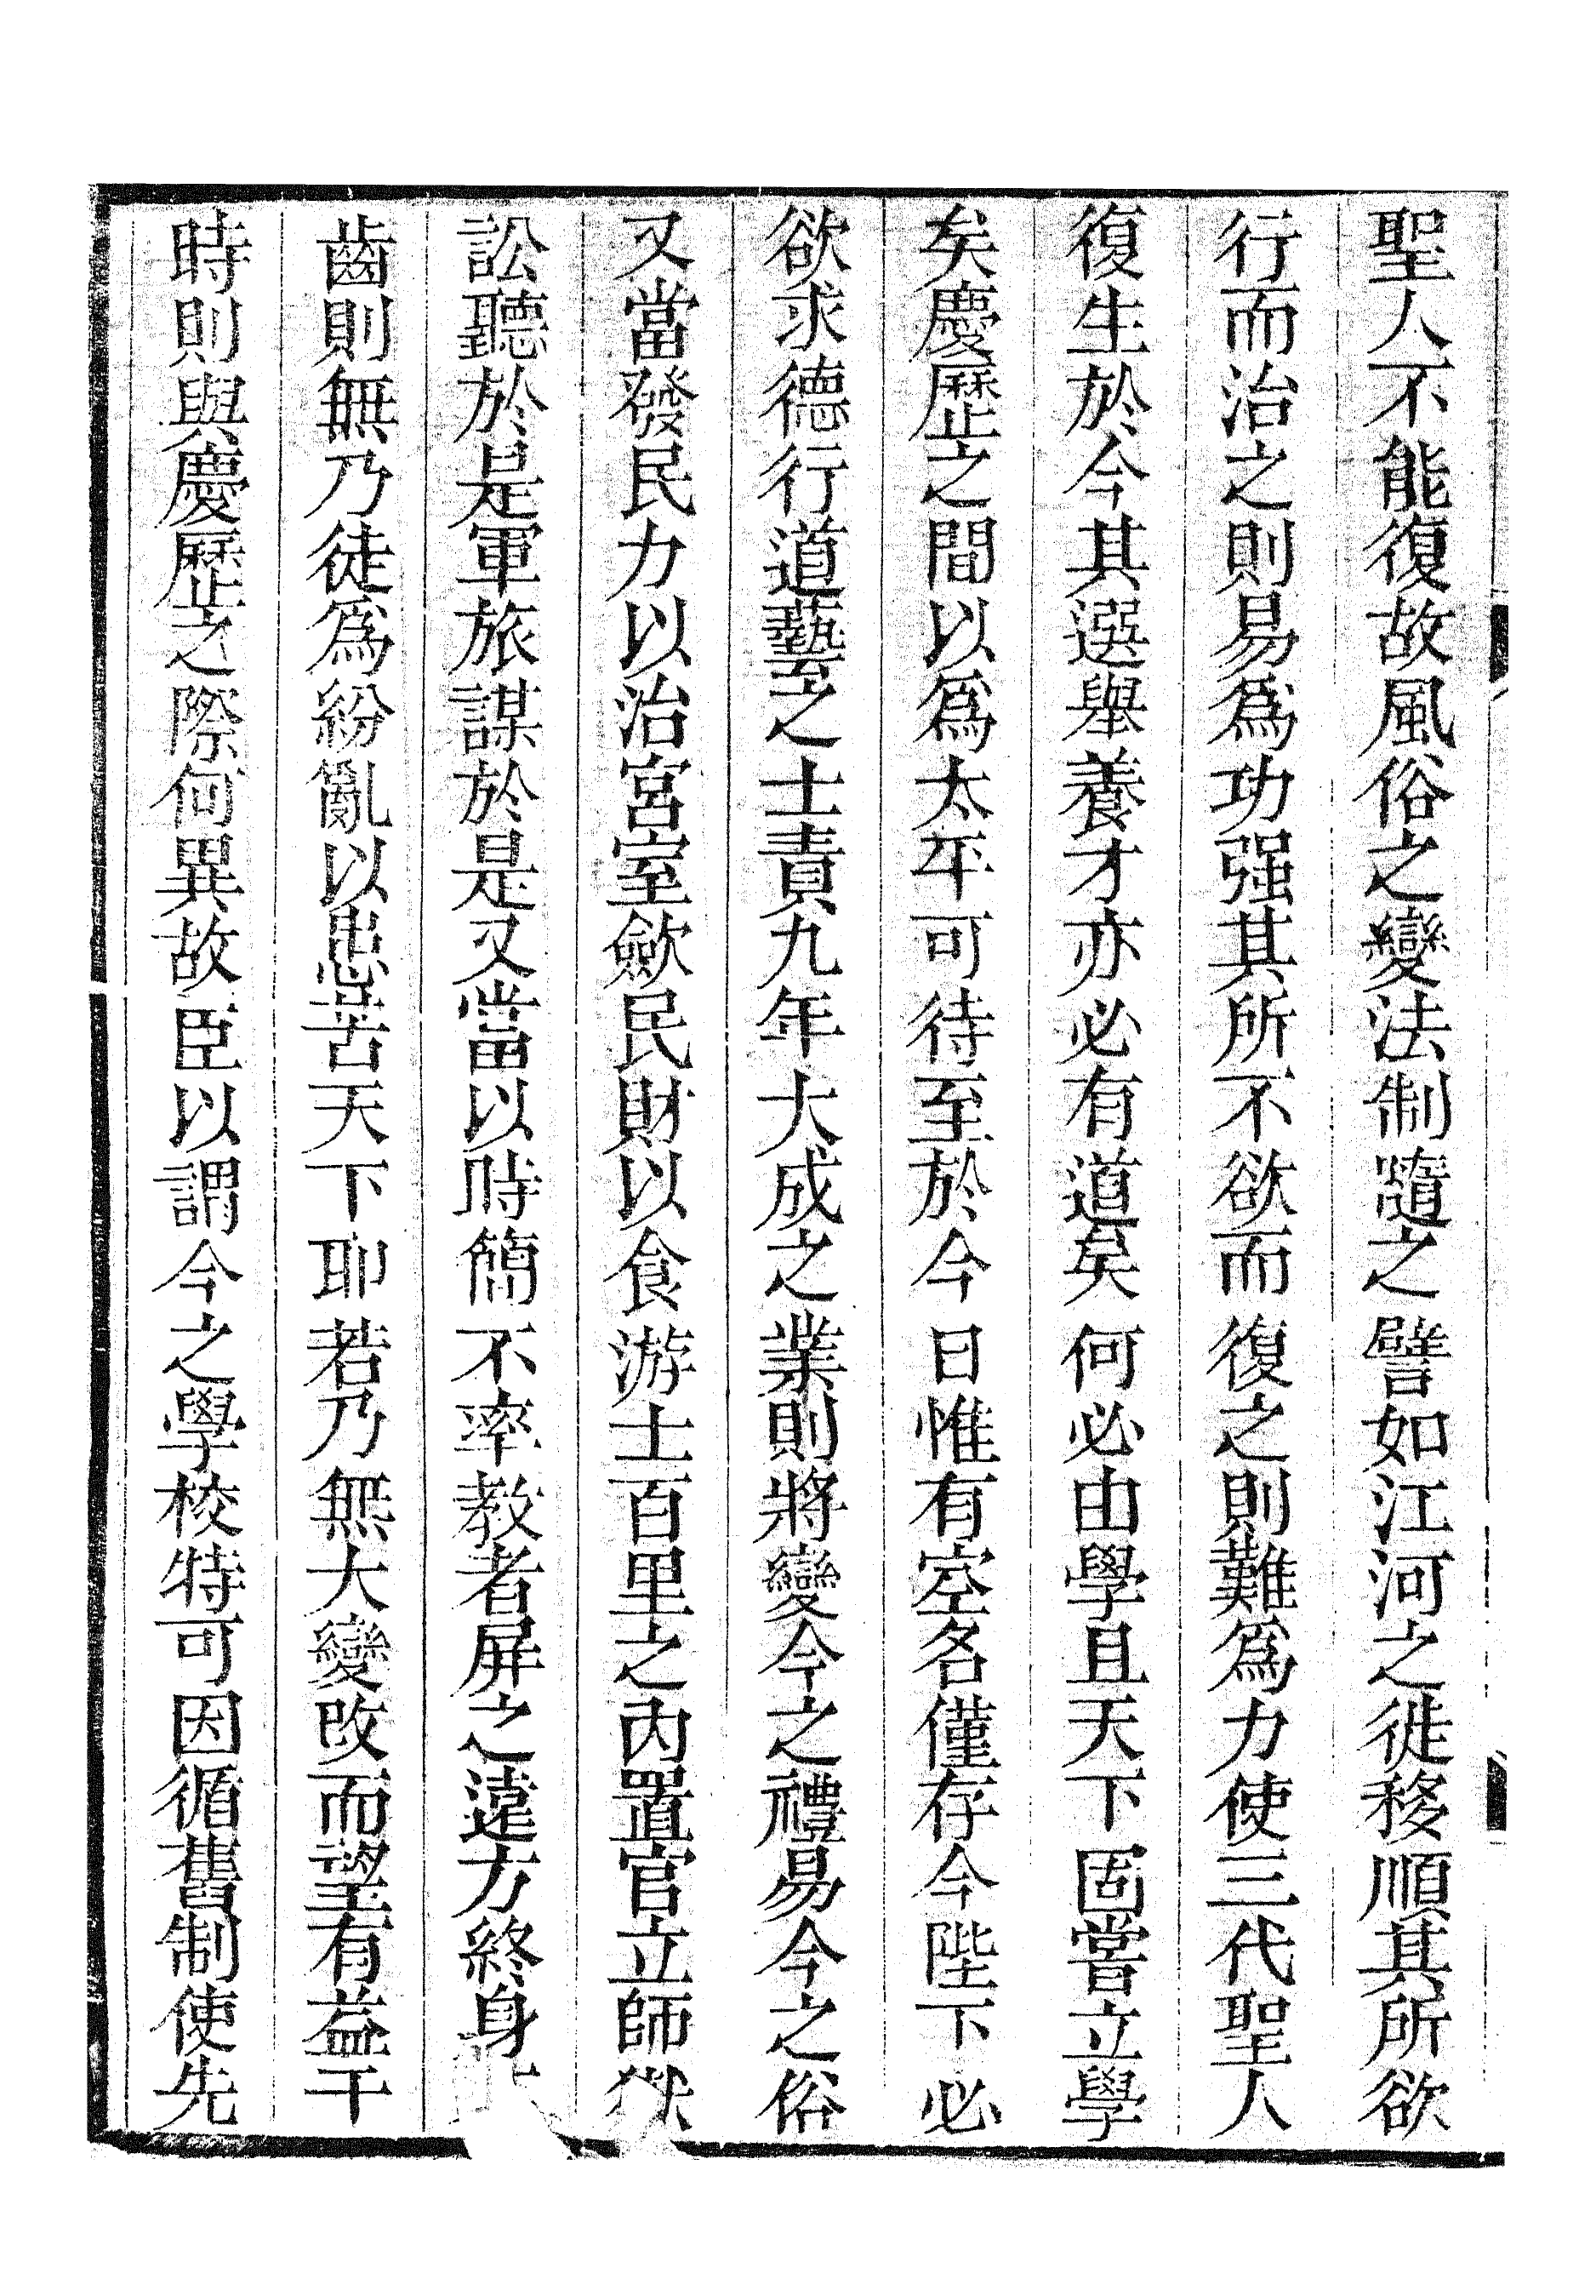 聖人不能復故風俗之變法制隨之譬如江河之徙移順其所欲
行而治之則易爲功强其所不欲而復之則難爲力使三代聖人
復生於今其選舉養才亦必有道矣何必由學且天下固嘗立學
矣慶歷之間以爲太平可待至於今日惟有空名僅存今陛下必
欲求德行道藝之士責九年大成之業則將變今之禮易今之俗
又當發民力以治宮室歛民財以食游士百里之內置官立師
訟聽於是軍旅謀於是又當以時簡不率教者屏之遠方終身
齒則無乃徒爲紛亂以患苦天下耶若乃無大變改而望有益于
時則與慶歷之際何異故臣以謂今之學校特可因循舊制使先